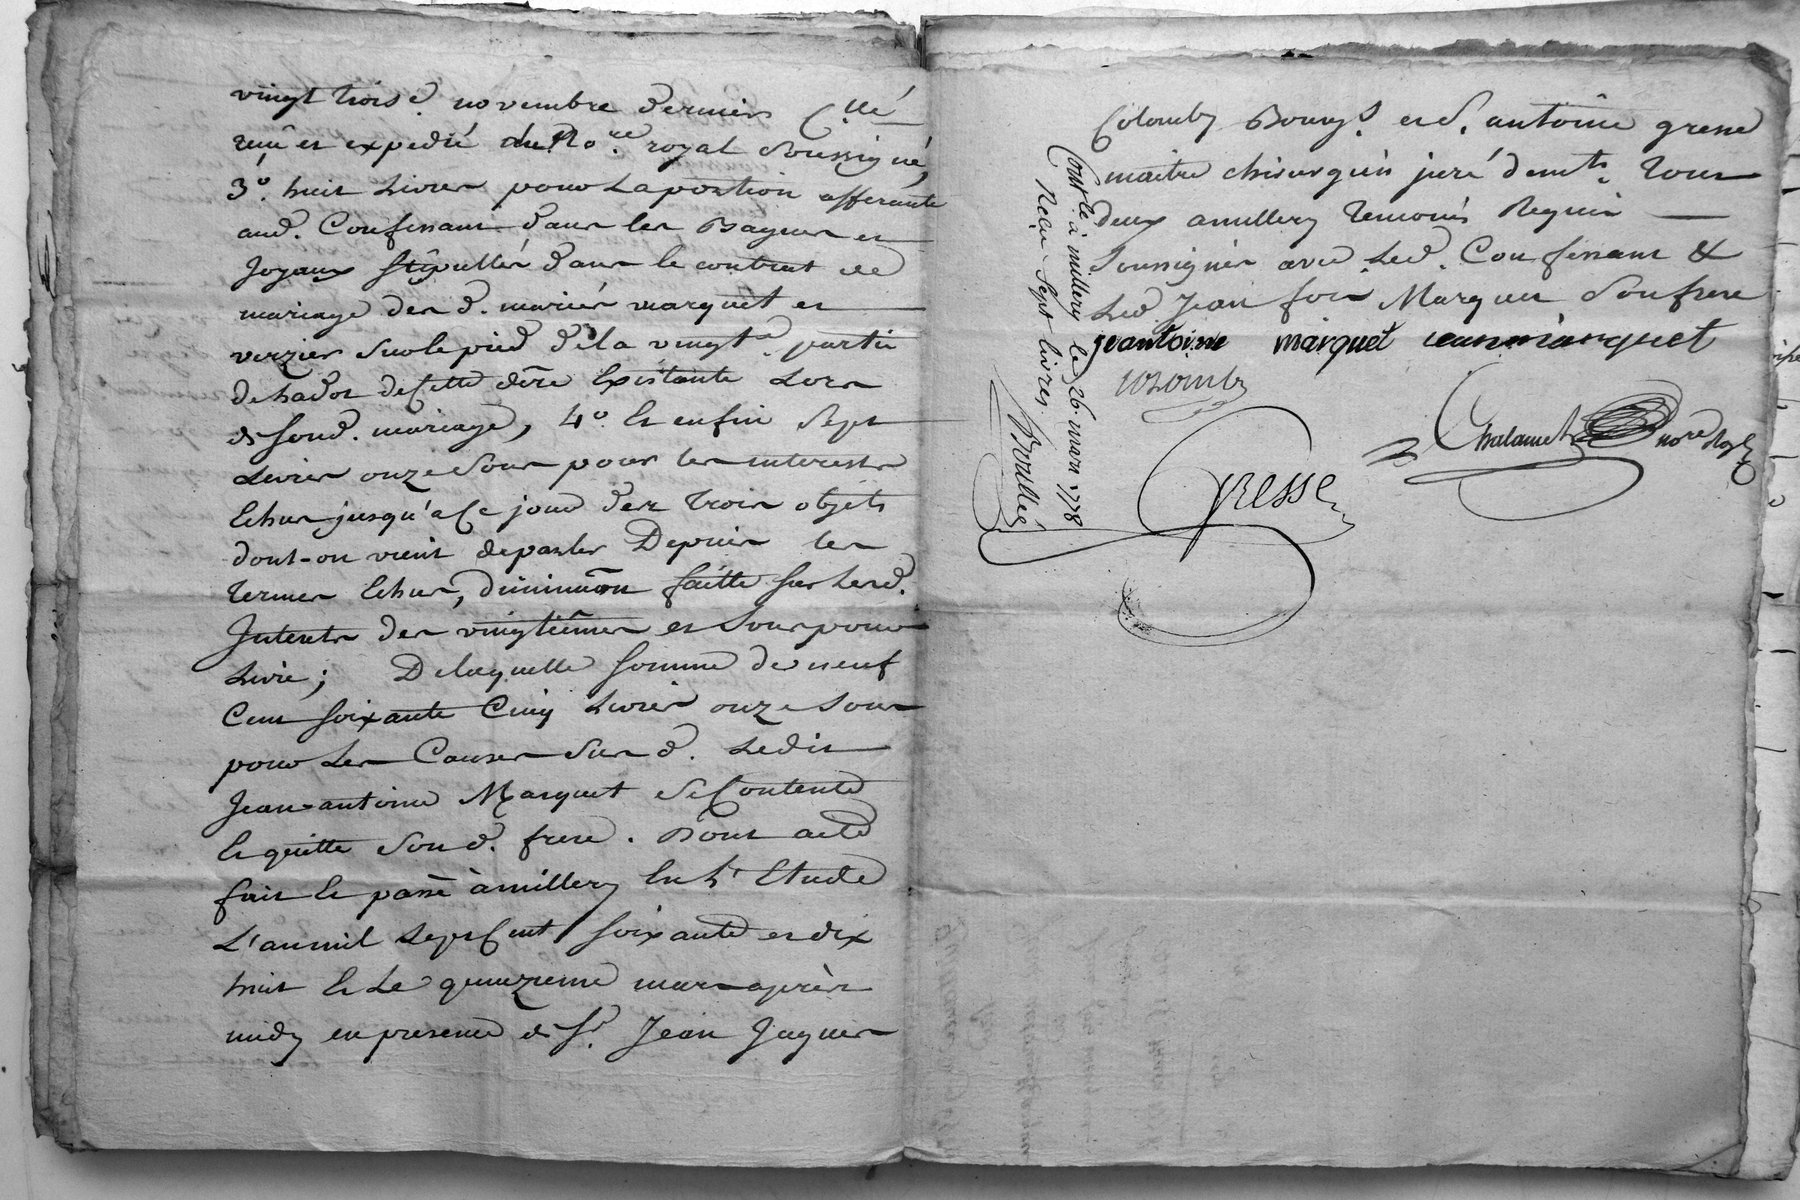 vingt trois novembre dernier C.llé
reçu et expedié du No.re royal Soussigné,
3.° huit Livres pour La portion afferante
aud. Confessant dans les Bagues et
Joyaux stipullés dans le contrat de
mariage des d. mariés marquet et
verzier sur le pied de la vingt.e partie
de cette d.re Existante Lors
de Sond. mariage, 4.° Et enfin Sept
Livres onze Sous pour les interests
Echus jusqu'a Ce jour des trois objets
dont-on vient deparler Depuis les
termes Echus, diminuôn faitte sur Lesd.
Interets des vingtiêmes et Sous pour
Livre; De laquelle Somme de neuf
Cent soixante Cinq Livres onze Sous
pour Les Causes Susd. Ledit
Jean-antoine Marquet se Contente
Et quitte Son d. frere. Dont acte
fait Et passé à millery En l'Etude
L'an mil Sept Cent soixante et dix
huit Et Le quinzieme mars après
midy en presence de S.r Jean Jaques
Colomby Bourg.s et S. antoine gresse
maitre chirurgien juré dem.ts tous
deux amillery temoins Requis
Soussignés avec Led. Confessant &
Led. Jean fois Marquet Son frere
jeantoine marquet jean marquet
Colomby
Gresse
Chalamel no.re Roy.l
Cont.lé à millery le 26. mars 1778
Reçu Sept livres.